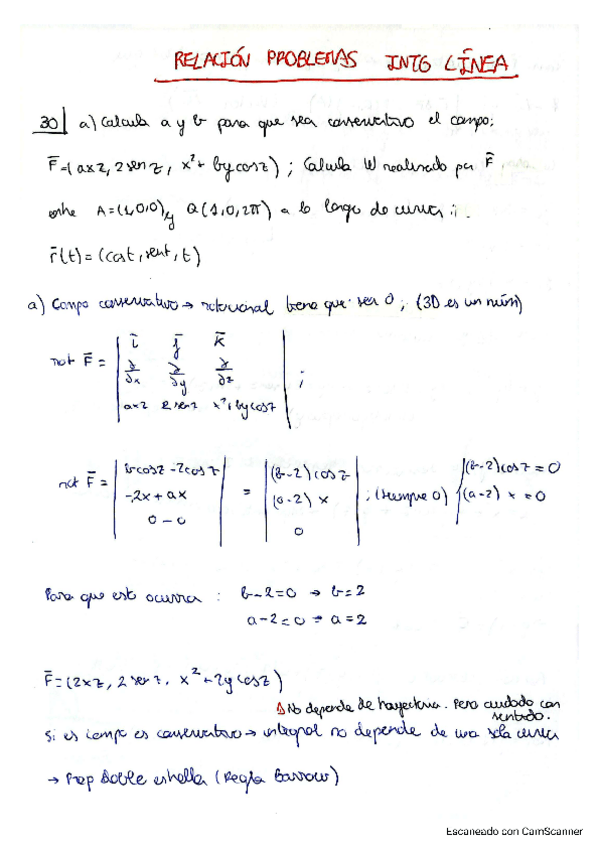 RELACIÓN PROBLEMAS INTG LÍNEA
30| a) Calcula a y b para que sea conservativo el campo:
F̄=(axz, 2senz, x²+bycosz); Calcula W realizado por F̄
entre A=(1,0,0) y Q(1,0,2π) a lo largo de curva:
r̄(t)=(cost, sent, t)
a) Campo conservativo → rotacional tiene que ser 0; (3D es un
rot F̄ = | ī j̄ k̄ |
| ∂/∂x ∂/∂y ∂/∂z | ;
| axz 2senz x²+bycosz |
rot F̄ = | bcosz-2cosz | = | (b-2)cosz | ; (siempre 0) { (b-2)cosz=0
| -2x+ax | | (a-2)x | (a-2)x=0
| 0-0 | | 0 |
Para que esto ocurra: b-2=0 → b=2
a-2=0 → a=2
F̄=(2xz, 2senz, x²+2ycosz)
No depende de trayectoria. Pero cuidado con
sentido.
Si es campo es conservativo → integral no depende de una sola curva
→ Prop doble estrella (Regla Barrow)
Escaneado con CamScanner